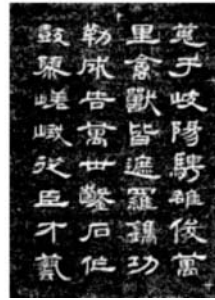 蒐于岐陽騁雄俊萬
里禽獸皆遮羅鐫功
勒成告萬世鑿石作
鼓隳嵯峨從臣才藝